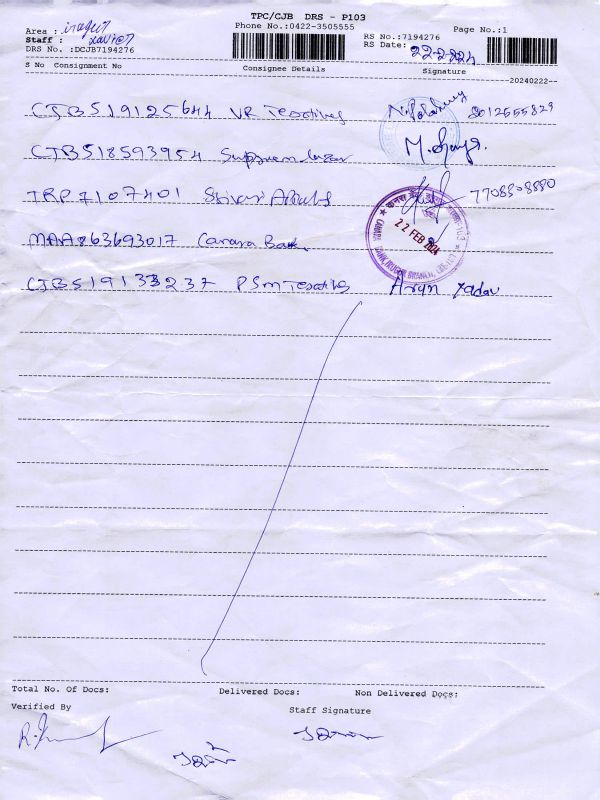 TPC/CJB DRS - P103
Phone No.:0422-3505555
Page No.:1
Area : irugur
Staff : xavier
DRS No. :DCJB7194276
RS No.:7194276
RS Date: 22-2-224
S No Consignment No Consignee Details Signature
20240222--
CJB519125644 VR Textiles 8012555829
CJB518593954
TRP7107401 7708808880
MAA863693017 Canara Bank
22 FEB 2024
CJB519133237 PSm Textiles Arun Yadav
Total No. Of Docs: Delivered Docs: Non Delivered Docs:
Verified By Staff Signature